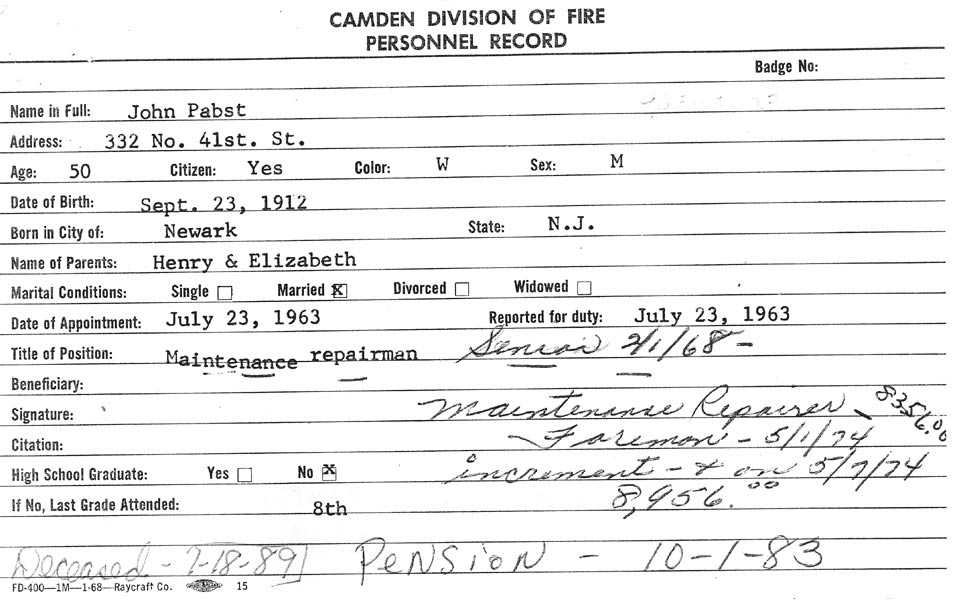 CAMDEN DIVISION OF FIRE
PERSONNEL RECORD
Badge No:
Name in Full: John Pabst
Address: 332 No. 41st. St.
Age: 50 Citizen: Yes Color: W Sex: M
Date of Birth: Sept. 23, 1912
Born in City of: Newark State: N.J.
Name of Parents: Henry & Elizabeth
Marital Conditions: Single Married X Divorced Widowed
Date of Appointment: July 23, 1963 Reported for duty: July 23, 1963
Title of Position: Maintenance repairman Senior 2/1/68 -
Beneficiary:
Signature: Maintenance Repairer - 8356.00
Citation: - Foreman - 5/1/74
High School Graduate: Yes No X increment - & on 5/7/74
If No, Last Grade Attended: 8th 8,956.00
Deceased - 7-18-89 PENSION - 10-1-83
FD-400—1M—1-68—Raycraft Co. 15